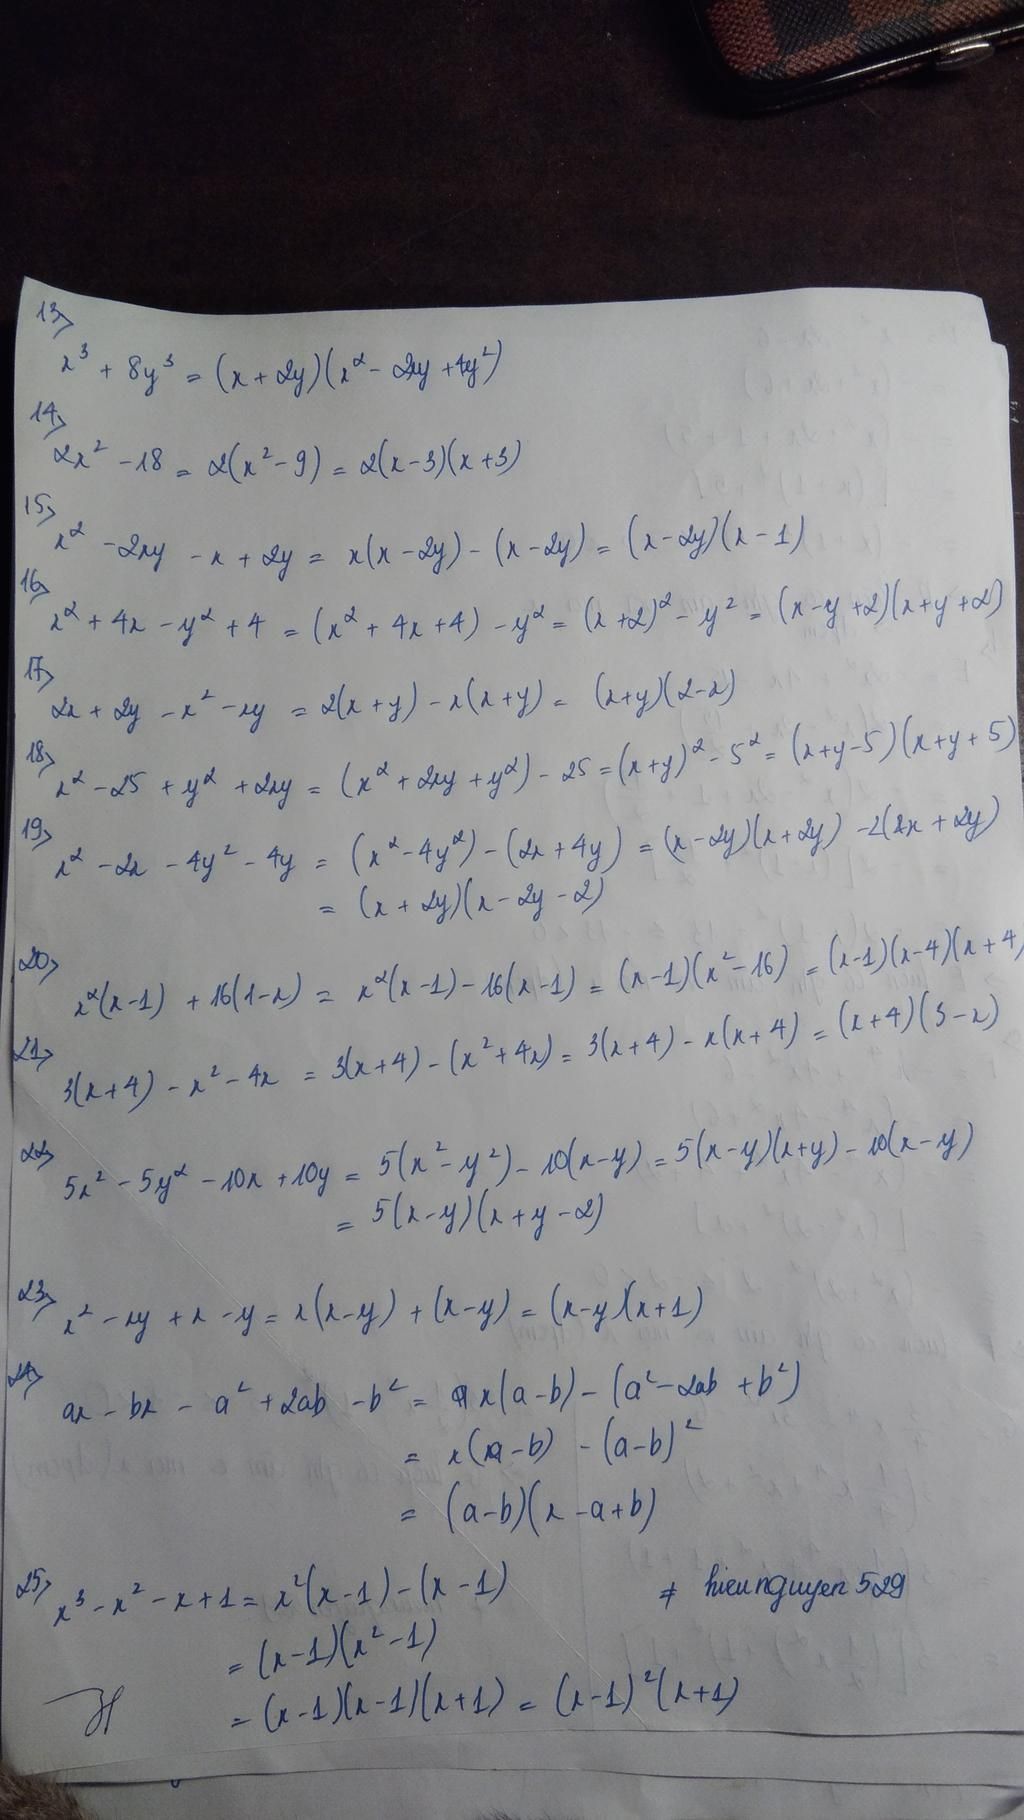 13>
x³ + 8y³ = (x + 2y)(x² - 2xy + 4y²)
14>
2x² - 18 = 2(x² - 9) = 2(x - 3)(x + 3)
15>
x² - 2xy - x + 2y = x(x - 2y) - (x - 2y) = (x - 2y)(x - 1)
16>
x² + 4x - y² + 4 = (x² + 4x + 4) - y² = (x + 2)² - y² = (x - y + 2)(x + y + 2)
17>
2x + 2y - x² - xy = 2(x + y) - x(x + y) = (x + y)(2 - x)
18>
x² - 25 + y² + 2xy = (x² + 2xy + y²) - 25 = (x + y)² - 5² = (x + y - 5)(x + y + 5)
19>
x² - 2x - 4y² - 4y = (x² - 4y²) - (2x + 4y) = (x - 2y)(x + 2y) - 2(x + 2y)
= (x + 2y)(x - 2y - 2)
20>
x²(x - 1) + 16(1 - x) = x²(x - 1) - 16(x - 1) = (x - 1)(x² - 16) = (x - 1)(x - 4)(x + 4)
21>
3(x + 4) - x² - 4x = 3(x + 4) - (x² + 4x) = 3(x + 4) - x(x + 4) = (x + 4)(3 - x)
22>
5x² - 5y² - 10x + 10y = 5(x² - y²) - 10(x - y) = 5(x - y)(x + y) - 10(x - y)
= 5(x - y)(x + y - 2)
23>
x² - xy + x - y = x(x - y) + (x - y) = (x - y)(x + 1)
24>
ax - bx - a² + 2ab - b² = x(a - b) - (a² - 2ab + b²)
= x(a - b) - (a - b)²
= (a - b)(x - a + b)
25>
x³ - x² - x + 1 = x²(x - 1) - (x - 1)
# hieunguyen 529
= (x - 1)(x² - 1)
= (x - 1)(x - 1)(x + 1) = (x - 1)²(x + 1)